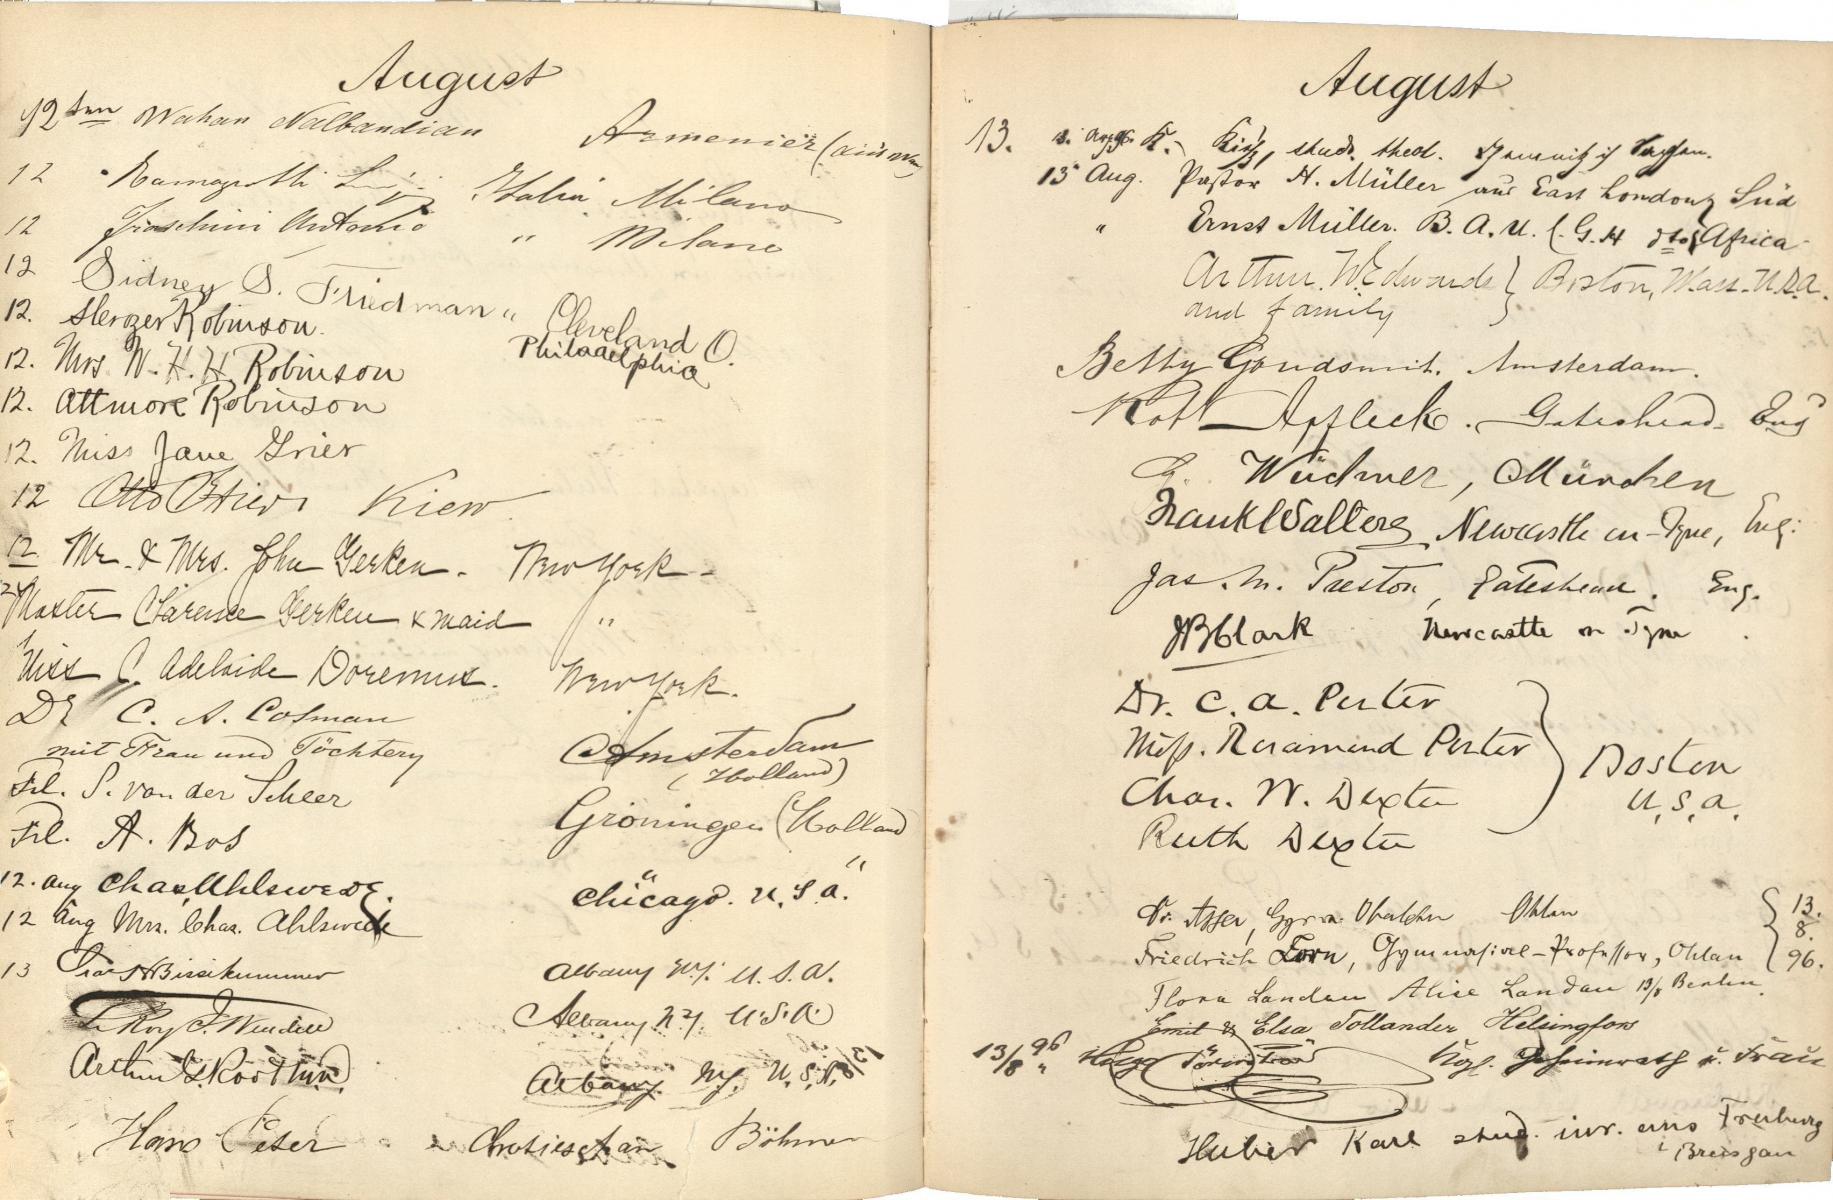 August
12ten Wahan Nalbandian Armenier (aus
12 Ramazzotti Luigi Italia Milano
12 Fraschini Antonio " Milano
12 Sidney S. Friedman " Cleveland O.
12. Robinson. Philadelphia
12. Mrs W. H. H Robinson
12. Attmore Robinson
12. Miss Jane Grier
12 Otto Kiew
12 Mr. & Mrs. John Gerken. New York -
Master Clarence Gerken & maid "
Miss C. Adelaide Doremus. New York.
Dr C. A. Cosman Amsterdam
mit Frau und Töchtern (Holland)
Frl. S. van der Scheer Groningen (Holland)
Frl. A. Bos " "
12. Aug Chas. Ahlswede. Chicago. U.S.A.
12 Aug Mrs. Chas. Ahlswede
13 Albany N.Y. U.S.A.
LeRoy J. Wendell Albany N.Y. U.S.A.
Arthur G. Root Albany N.Y. U.S.A. 13/8
Hans Peter Chotieschau Böhmen
August
13. 13. Aug 96. K. stud. theol.
13 Aug. Pastor H. Müller aus East London Süd
" Ernst Müller. B.A. U.C.G.H dto Africa
Arthur W. Edwards } Boston, Mass. U.S.A.
and family
Betty Goudsmit. Amsterdam.
Robt Affleck. Gateshead. Eng
G. Widmer, München
Frank Walters Newcastle on-Tyne, Eng:
Jas. M. Preston, Gateshead. Eng.
JB Clark Newcastle on Tyne
Dr. C. A. Porter
Miss. Rosamond Porter Boston
Chas. W. Dexter U.S.A.
Ruth Dexter
Dr. Ohlau 13.
Friedrich Zorn, Gymnasial-Professor, Ohlau 8. 96.
Flora Landau Alice Landau 13/8 Berlin
Emil & Elsa Tollander Helsingfors
13/8 96 Hugo Kgl. Geheimrath u. Frau
Huber Karl stud. iur. aus Freiburg
i Breisgau